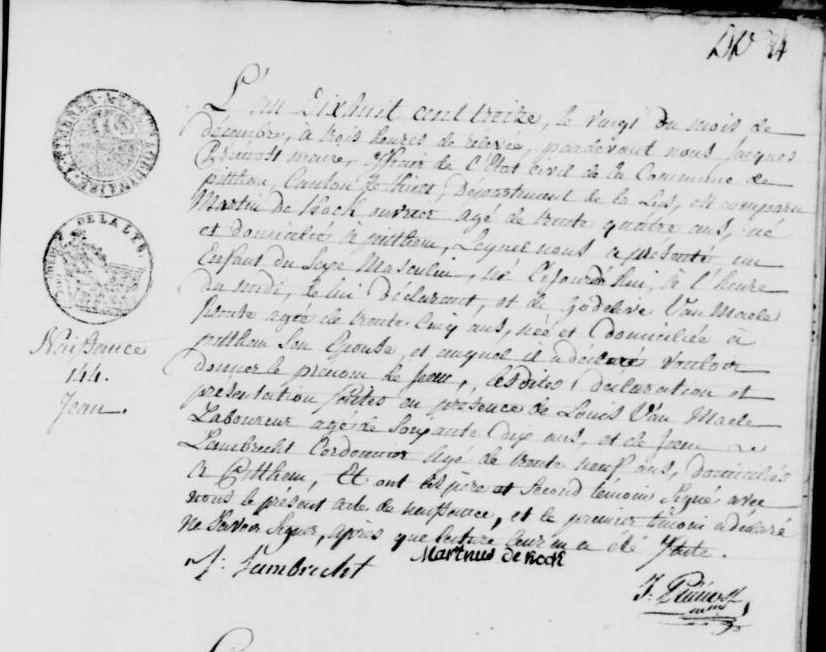 L'an Dixhuit cent treize, le vingt du mois de
décembre, à trois heures de rélevée, pardevant nous Jacques
Prévost maire, officier de l'état civil de la Commune de
pitthem, Canton de thielt, Département de la Lys, est comparu
Martin De Kock ouvrier agé de trente quatre ans, né
et domicilié à pitthem, Lequel nous a présenté un
Enfant du Sexe Masculin, né Cejourd'hui, à l'heure
du midi, de lui Déclarant, et de Godelive Van Maele
agée de trente Cinq ans, née et Domiciliée à
pitthem Son Epouse, et auquel il a déclaré vouloir
donner le prénom de Jean, lesdites déclaration et
présentation faites en présence de Louis Van Maele
Laboureur agé de Soixante Dix ans, et de Jean
Lambrecht Cordonnier agé de trente neuf ans, domiciliés
à Pitthem, Et ont les père et Second témoin Signé avec
nous le présent acte de naissance, et le premier témoin a déclaré
ne Savoir Signer, après que lecture leur en a été faite.
DE LA LYS
Naissance
144.
Jean.
J: Lambrecht
Martinus de kock
J. Prévost